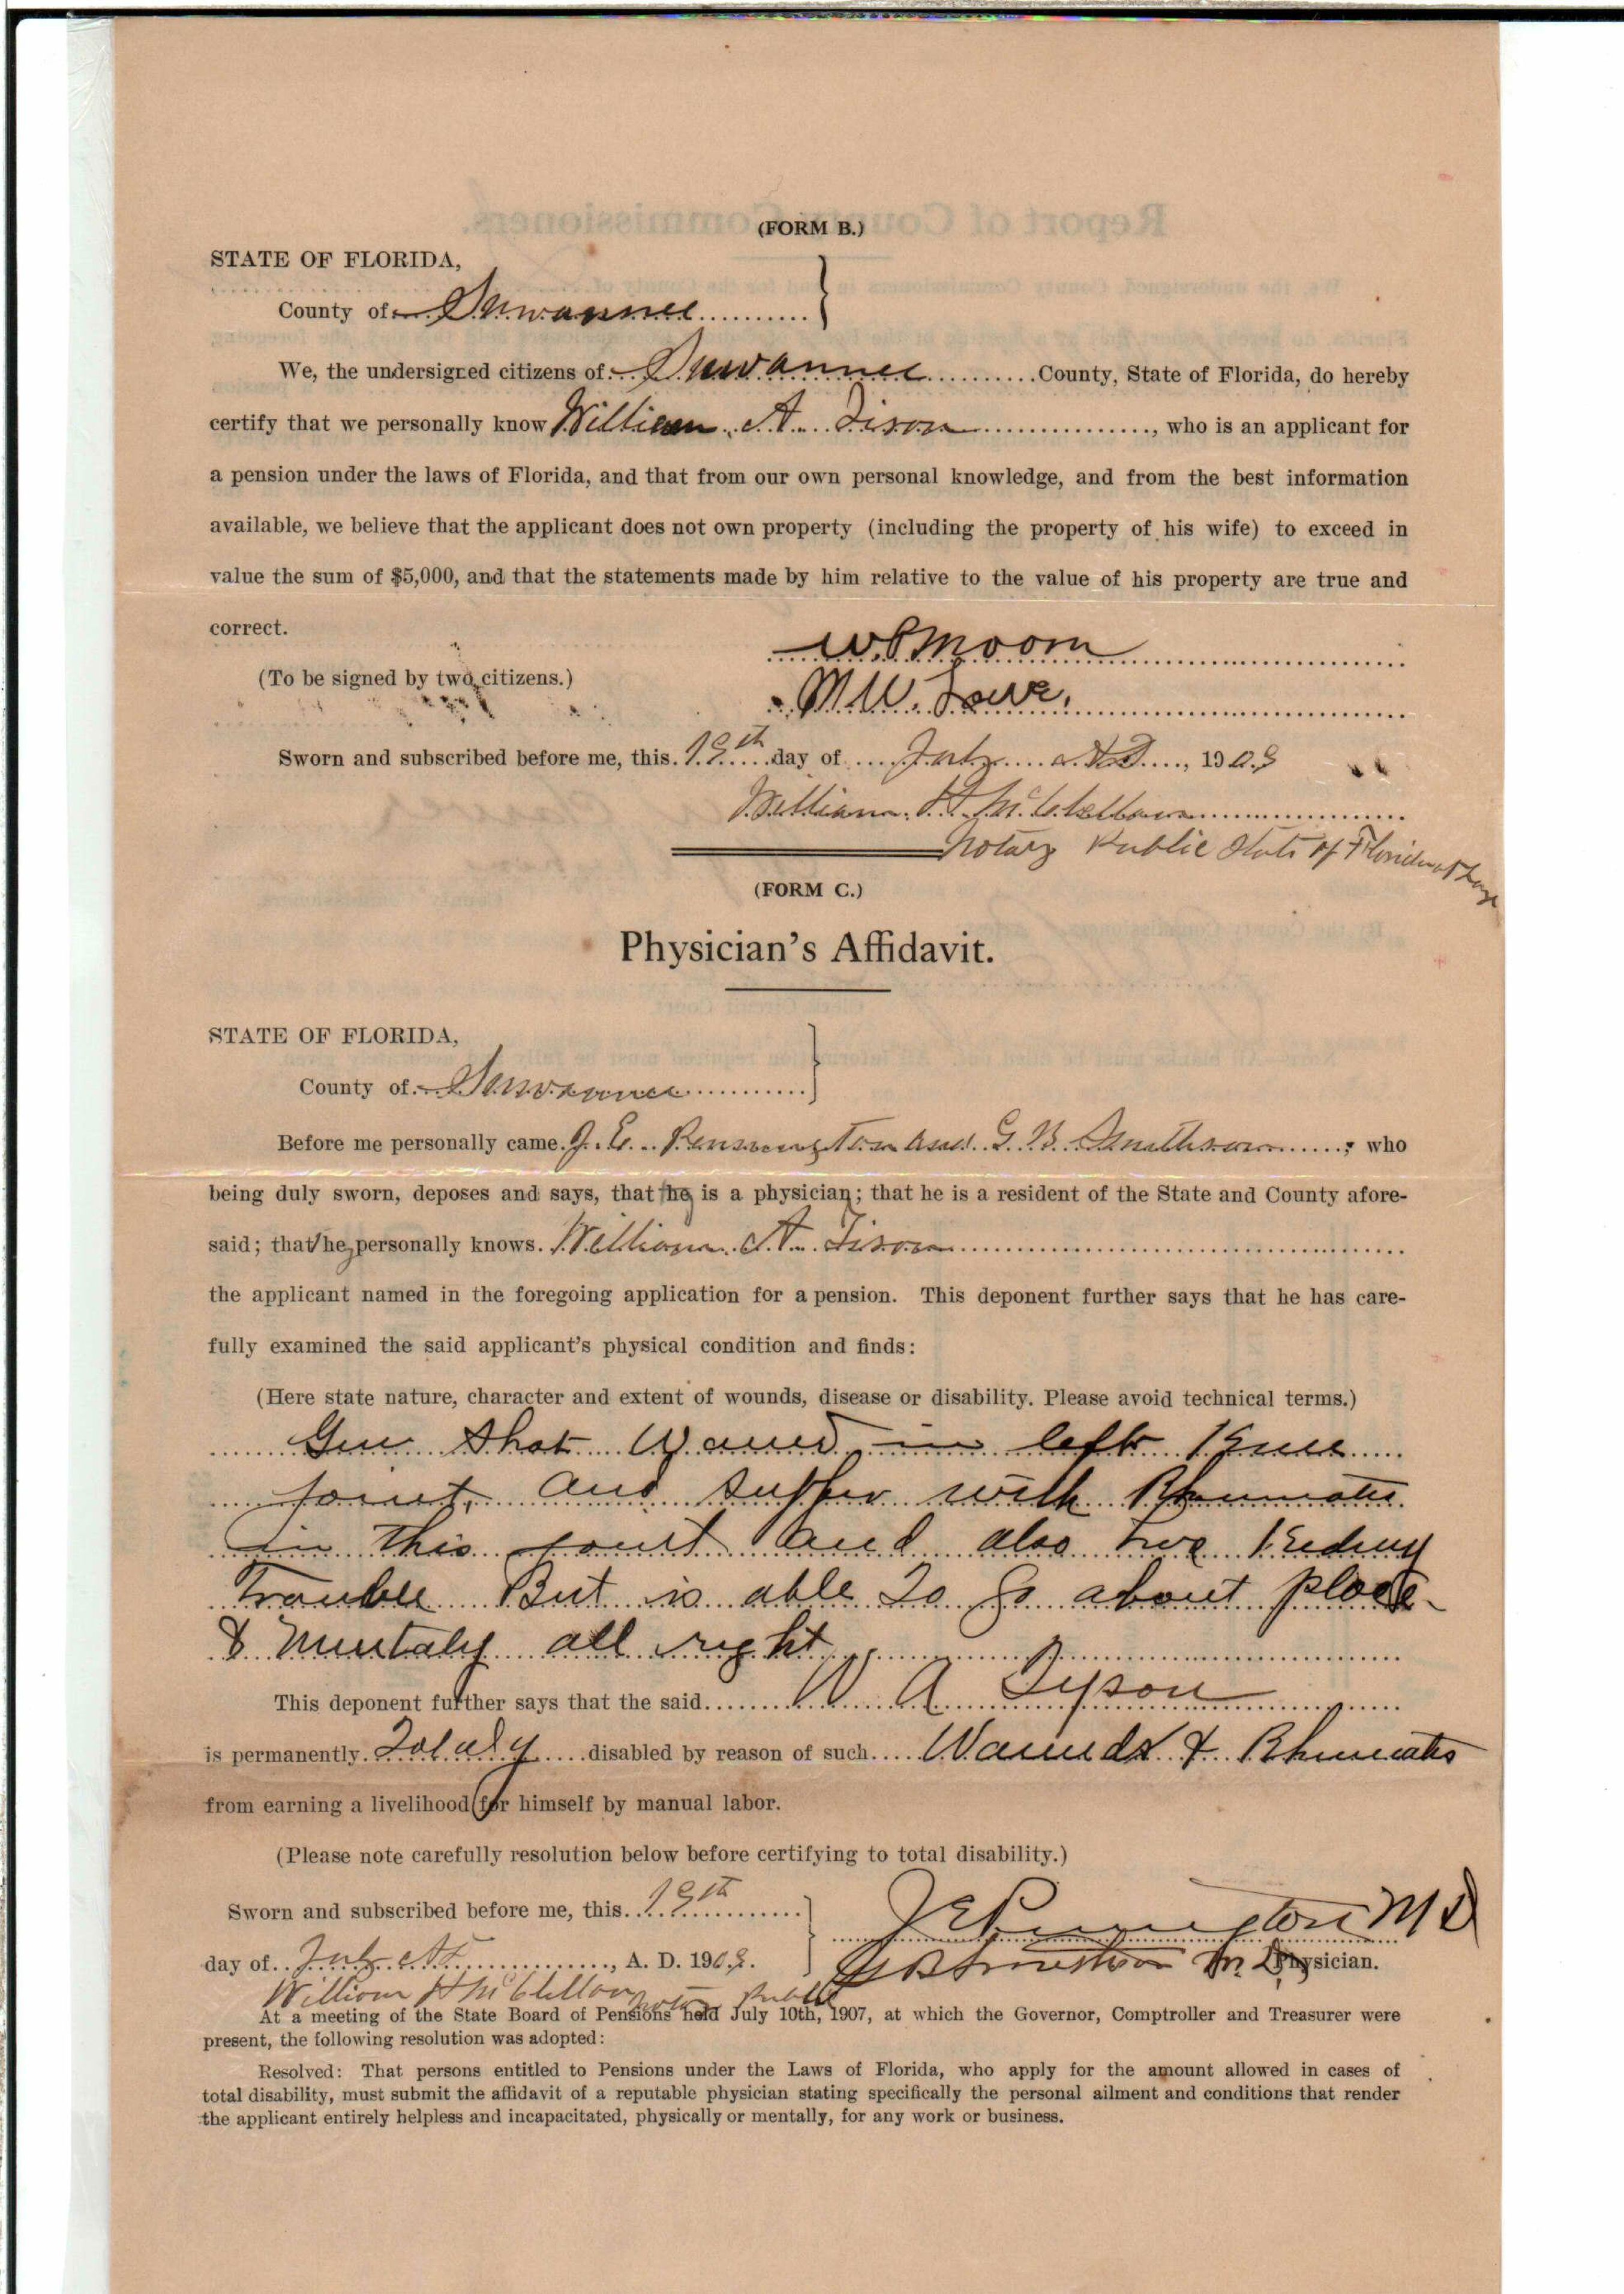 (FORM B.)
STATE OF FLORIDA,
County of Suwannee
We, the undersigned citizens of Suwannee County, State of Florida, do hereby
certify that we personally know William A. Tison, who is an applicant for
a pension under the laws of Florida, and that from our own personal knowledge, and from the best information
available, we believe that the applicant does not own property (including the property of his wife) to exceed in
value the sum of $5,000, and that the statements made by him relative to the value of his property are true and
correct.
W.P. Moom
(To be signed by two citizens.)
M.W. Lowe.
Sworn and subscribed before me, this 19th day of July A.D., 1909
William H. McClellan
Notary Public State of Florida at Large
(FORM C.)
Physician's Affidavit.
STATE OF FLORIDA,
County of Suwannee
Before me personally came J. E. Pennington and G. B. Smithson; who
being duly sworn, deposes and says, that he is a physician; that he is a resident of the State and County afore-
said; that he personally knows William A. Tison
the applicant named in the foregoing application for a pension. This deponent further says that he has care-
fully examined the said applicant's physical condition and finds:
(Here state nature, character and extent of wounds, disease or disability. Please avoid technical terms.)
Gun Shot Wound in left Knee
joint, and suffer with
in this joint and also
Trouble But is able To go about place
& Mentaly all right
This deponent further says that the said W A Tyson
is permanently Totaly disabled by reason of such Wounds &
from earning a livelihood for himself by manual labor.
(Please note carefully resolution below before certifying to total disability.)
Sworn and subscribed before me, this 19th
J E Pennington M D
day of July A.D., A. D. 1909.
G B Smithson M. D. Physician.
William H McClellan Notary Public
At a meeting of the State Board of Pensions held July 10th, 1907, at which the Governor, Comptroller and Treasurer were
present, the following resolution was adopted:
Resolved: That persons entitled to Pensions under the Laws of Florida, who apply for the amount allowed in cases of
total disability, must submit the affidavit of a reputable physician stating specifically the personal ailment and conditions that render
the applicant entirely helpless and incapacitated, physically or mentally, for any work or business.